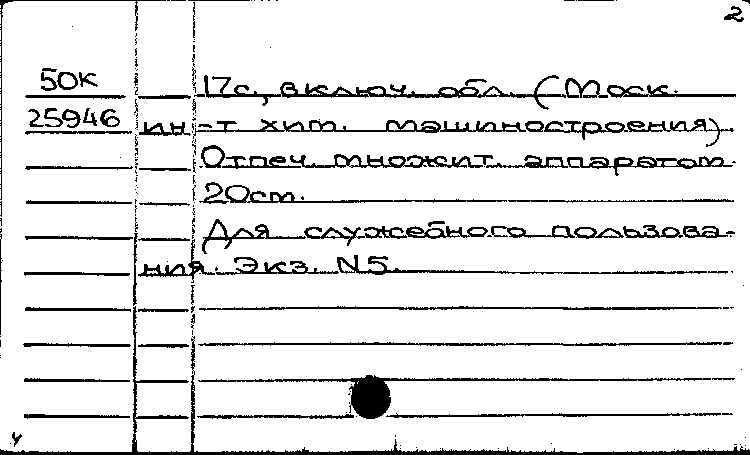 2
50К 17с., включ. обл. (Моск.
25946 ин-т хим. машиностроения).
Отпеч. множит. аппаратом
20cm.
Для служебного пользова-
ния. Экз. N5.